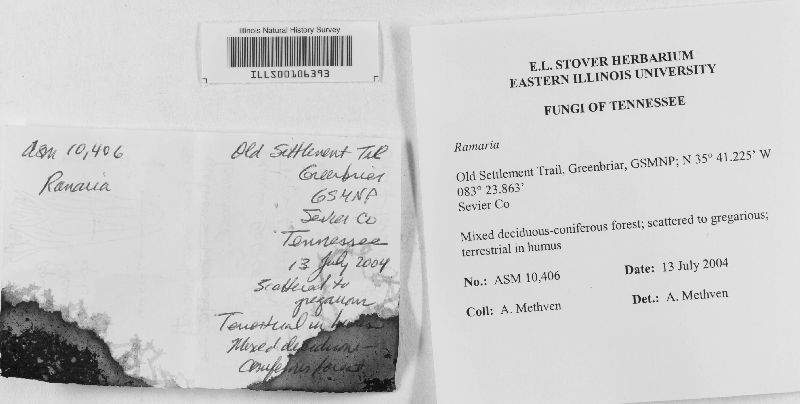 Illinois Natural History Survey
ILLS00106393
asm 10,406
Ramaria
Old Settlement Trl
Greenbrier
GSMNP
Sevier Co
Tennessee
13 July 2004
Scattered to
gregarious
Terrestrial in humus
Mixed deciduous-
coniferous forest
E.L. STOVER HERBARIUM
EASTERN ILLINOIS UNIVERSITY
FUNGI OF TENNESSEE
Ramaria
Old Settlement Trail, Greenbriar, GSMNP; N 35° 41.225' W
083° 23.863'
Sevier Co
Mixed deciduous-coniferous forest; scattered to gregarious;
terrestrial in humus
No.: ASM 10,406 Date: 13 July 2004
Coll: A. Methven Det.: A. Methven